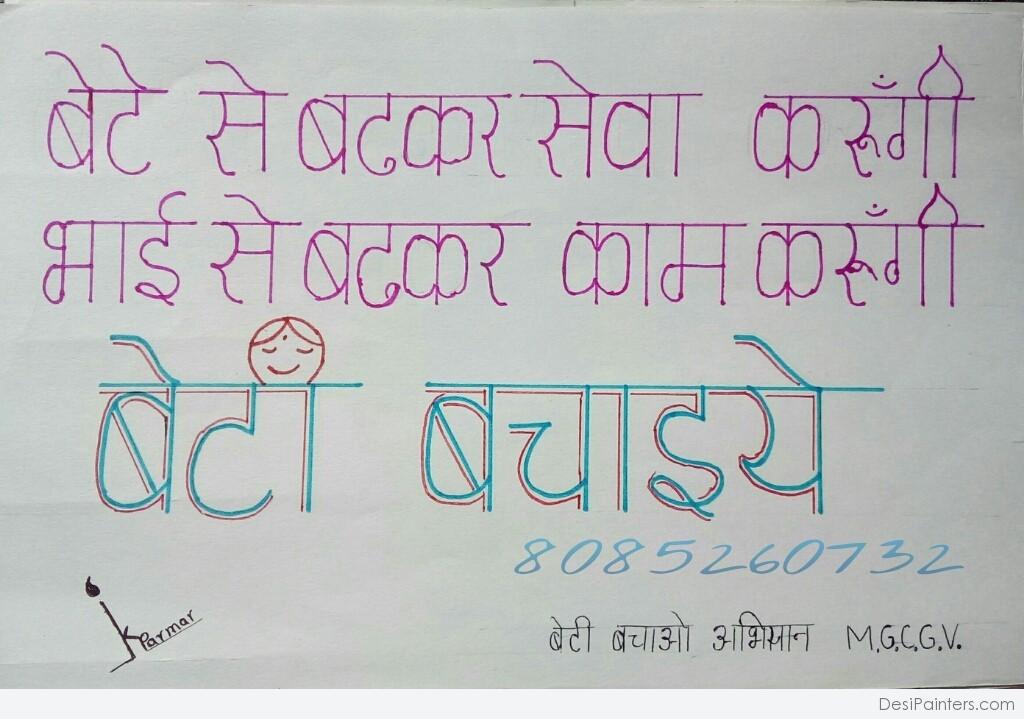 बेटे से बढकर सेवा करूँगी
भाई से बढकर काम करूँगी
बेटी बचाइये
8085260732
K Parmar
बेटी बचाओ अभियान M.G.C.G.V.
DesiPainters.com